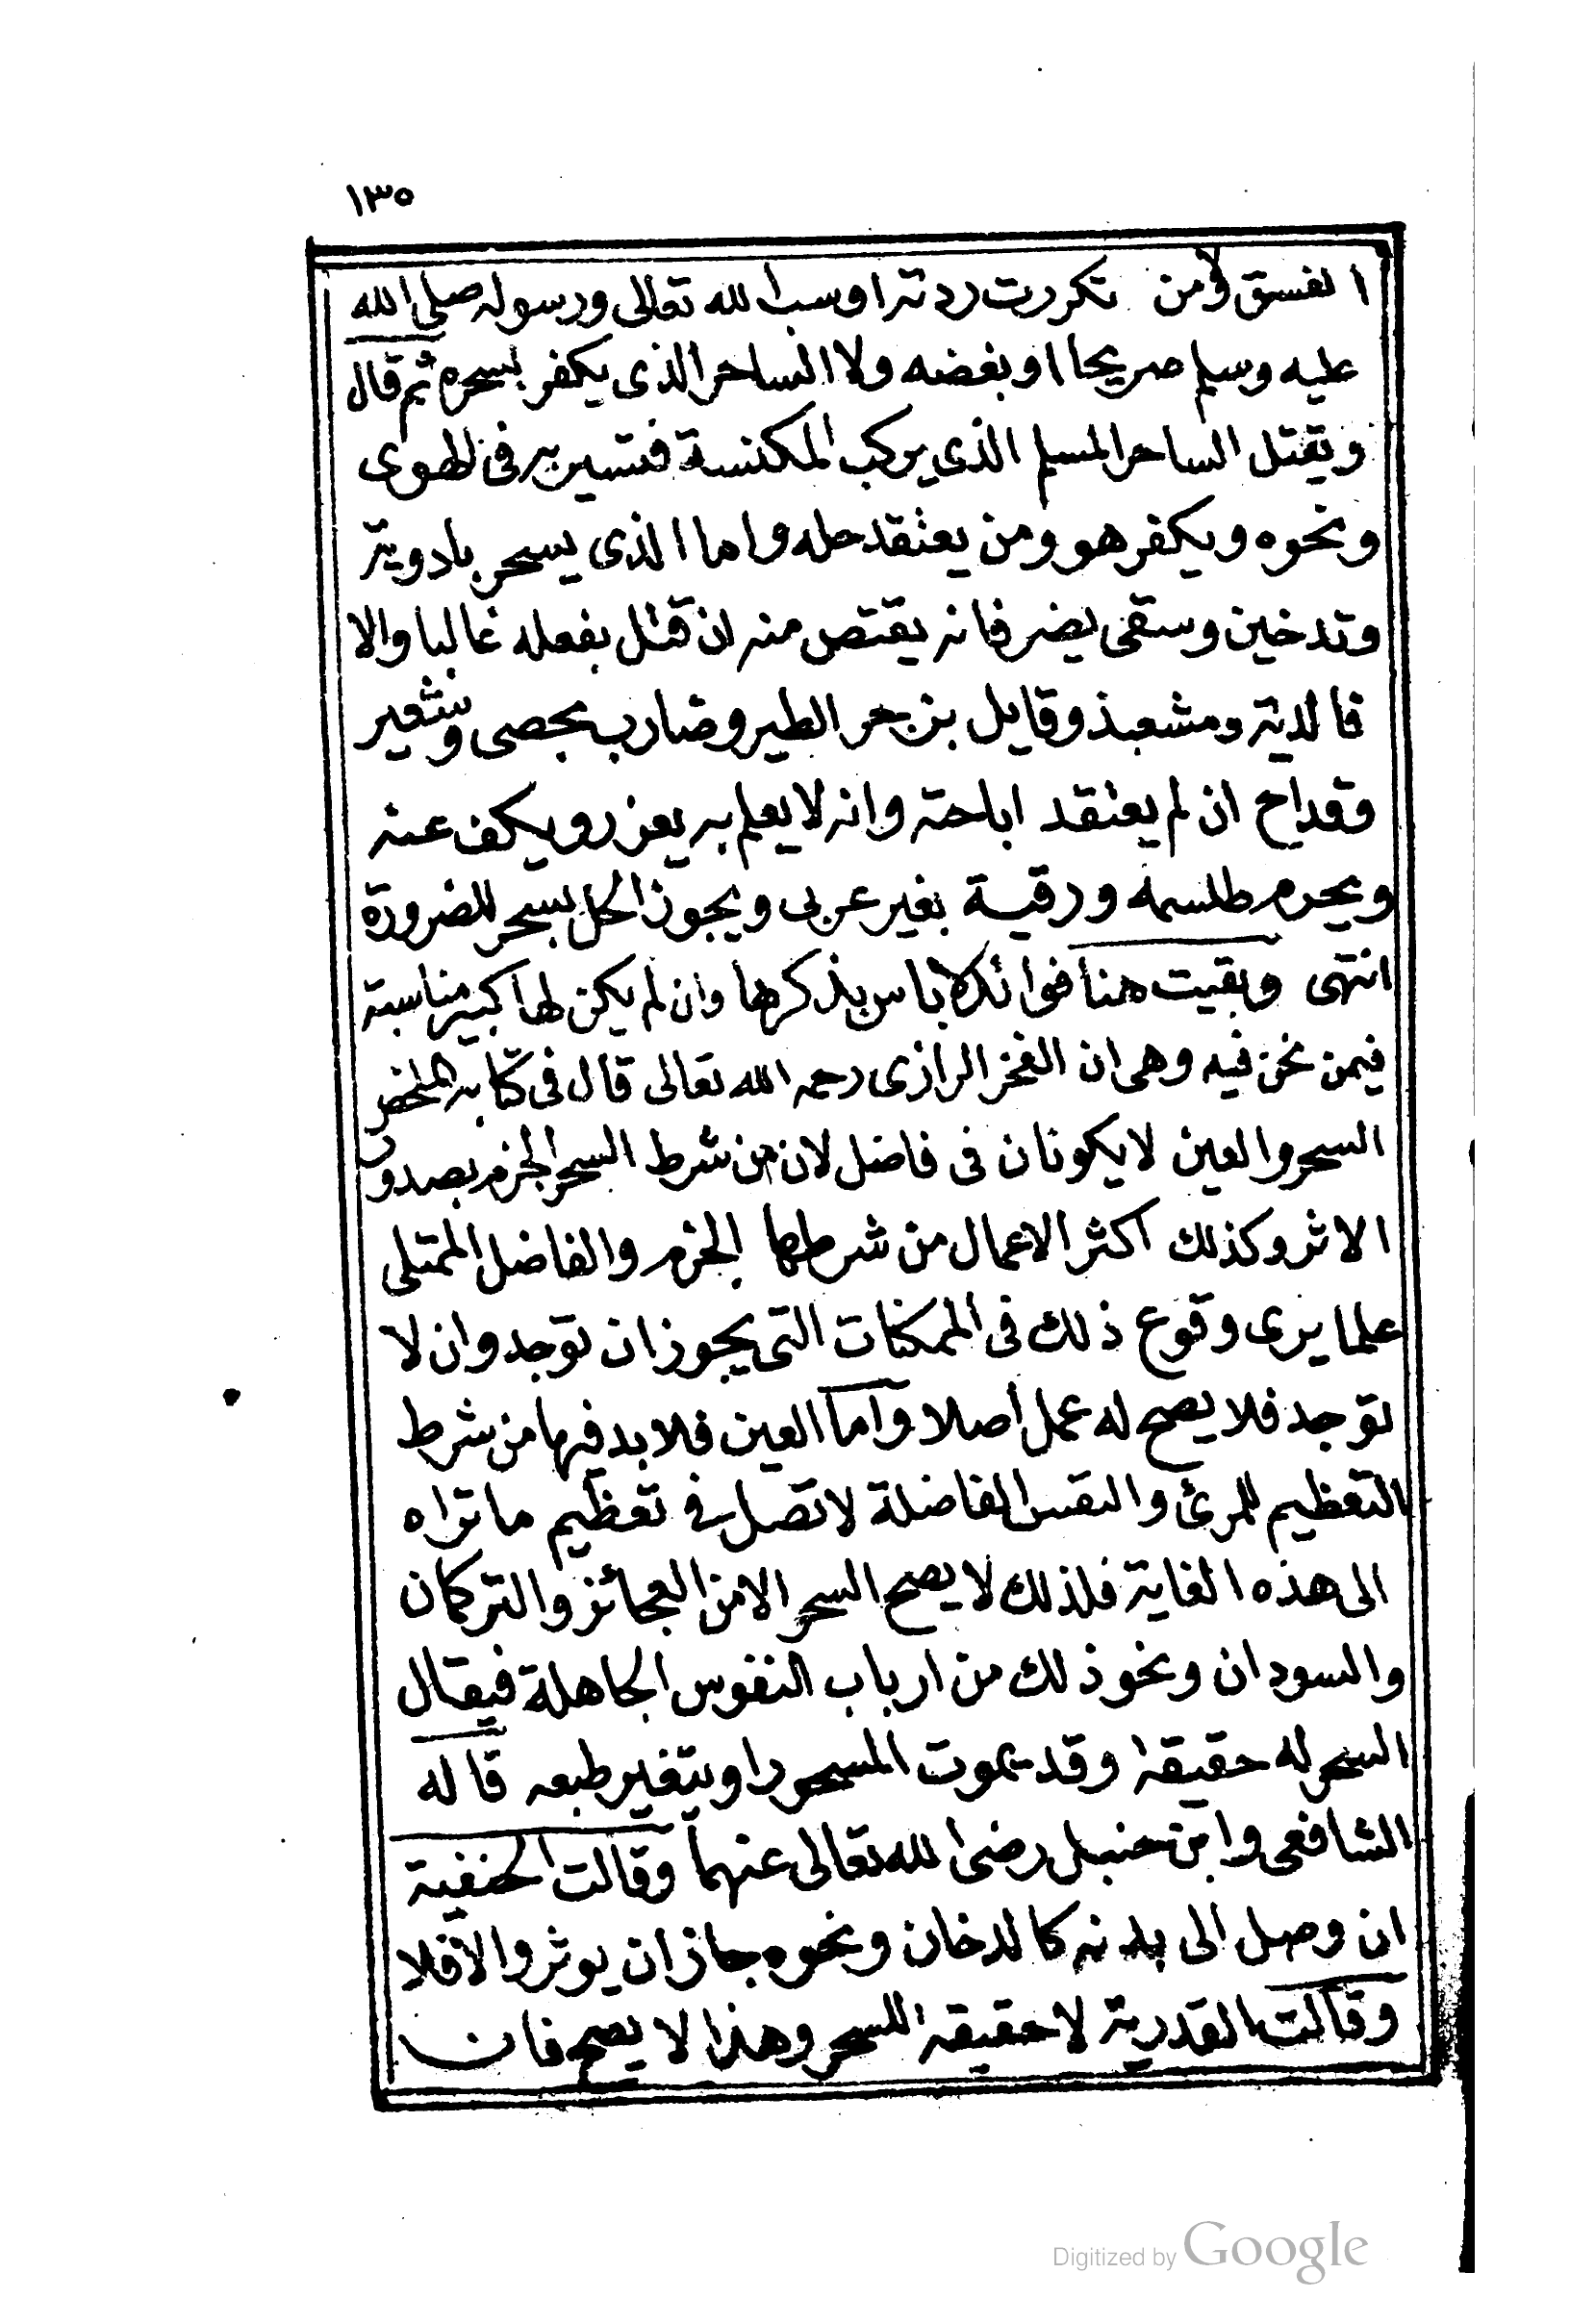 ١٣٥
الفسق ولا من تكررت ردته او سب الله تعالى ورسوله صلى الله
عليه وسلم صريحا او بغضه ولا الساحر الذى يكفر بسحره ثم قال
ويقتل الساحر المسلم الذى يركب المكنسة فتسير به فى الهوى
ونحوه ويكفر هو ومن يعتقد حله واما الذى يسحر بادوية
وتدخين وسقى يضر فانه يقتص منه ان قتل بفعله غالبا والا
فالدية ومشعبذ وقايل بزجر الطير وضارب بحصى وشعير
وقداح ان لم يعتقد اباحته وانه لا يعلم به يعزر ويكف عنه
ويحرم طلسمه ورقية بغير عربى ويجوز الحل بسحر للضرورة
انتهى وبقيت هنا فوائد لا باس بذكرها وان لم يكن لها كبير مناسبة
فيمن نحن فيه وهى ان الفخر الرازى رحمه الله تعالى قال فى كتابه الملخص
السحر والعين لا يكونان فى فاضل لان من شرط السحر الجزم بصدور
الاثر وكذلك اكثر الاعمال من شرطها الجزم والفاضل الممتلى
علما يرى وقوع ذلك فى الممكنات التى يجوز ان توجد وان لا
توجد فلا يصح له عمل أصلا وأما العين فلا بد فيها من شرط
التعظيم للمرئ والنفس الفاضلة لا تصل فى تعظيم ما تراه
الى هذه الغاية فلذلك لا يصح السحر الا من العجائز والتركمان
والسودان ونحو ذلك من ارباب النفوس الجاهلة فيقال
السحر له حقيقة وقد يموت المسحور او يتغير طبعه قاله
الشافعى وابن حنبل رضى الله تعالى عنهما وقالت الحنفية
ان وصل الى بدنه كالدخان ونحوه جاز ان يوثر والا فلا
وقالت القدرية لا حقيقة للسحر وهذا لا يصح فان
Digitized by Google